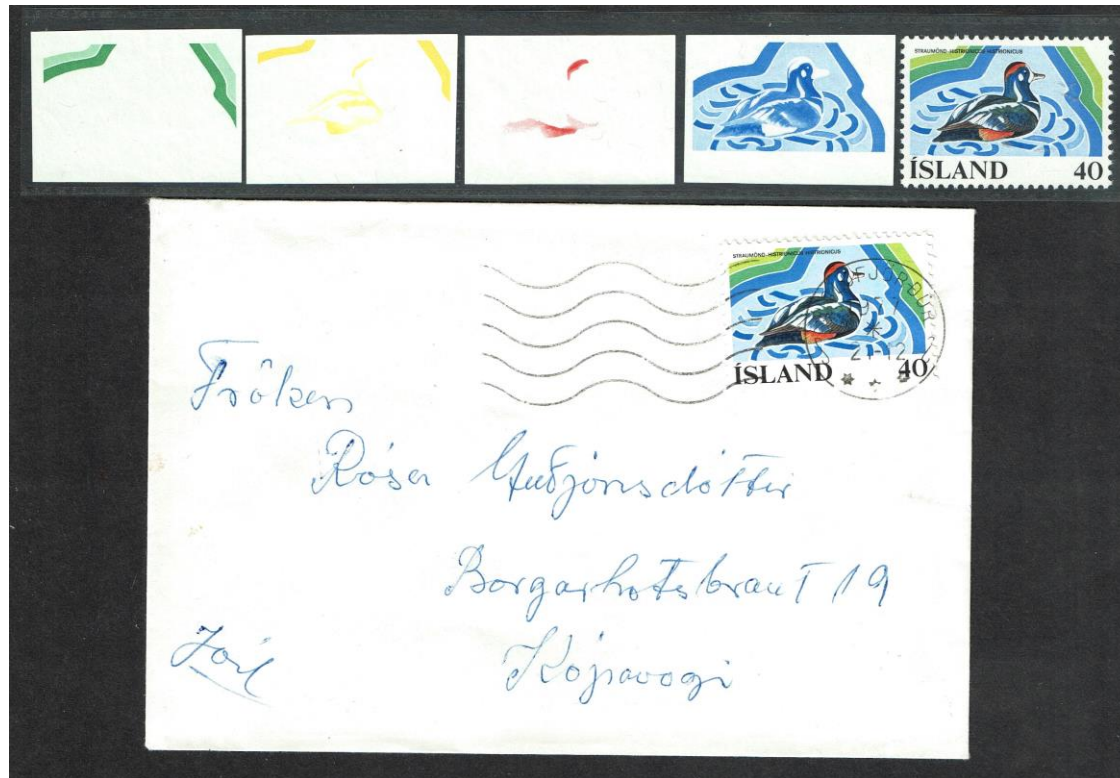 STRAUMÖND-HISTRIONICUS HISTRIONICUS
ÍSLAND 40
STRAUMÖND-HISTRIONICUS HISTRIONICUS
FJÖRÐUR
21-12
ÍSLAND 40
Fröken
Rósa Guðjónsdóttir
Borgarholtsbraut 19
Kópavogi